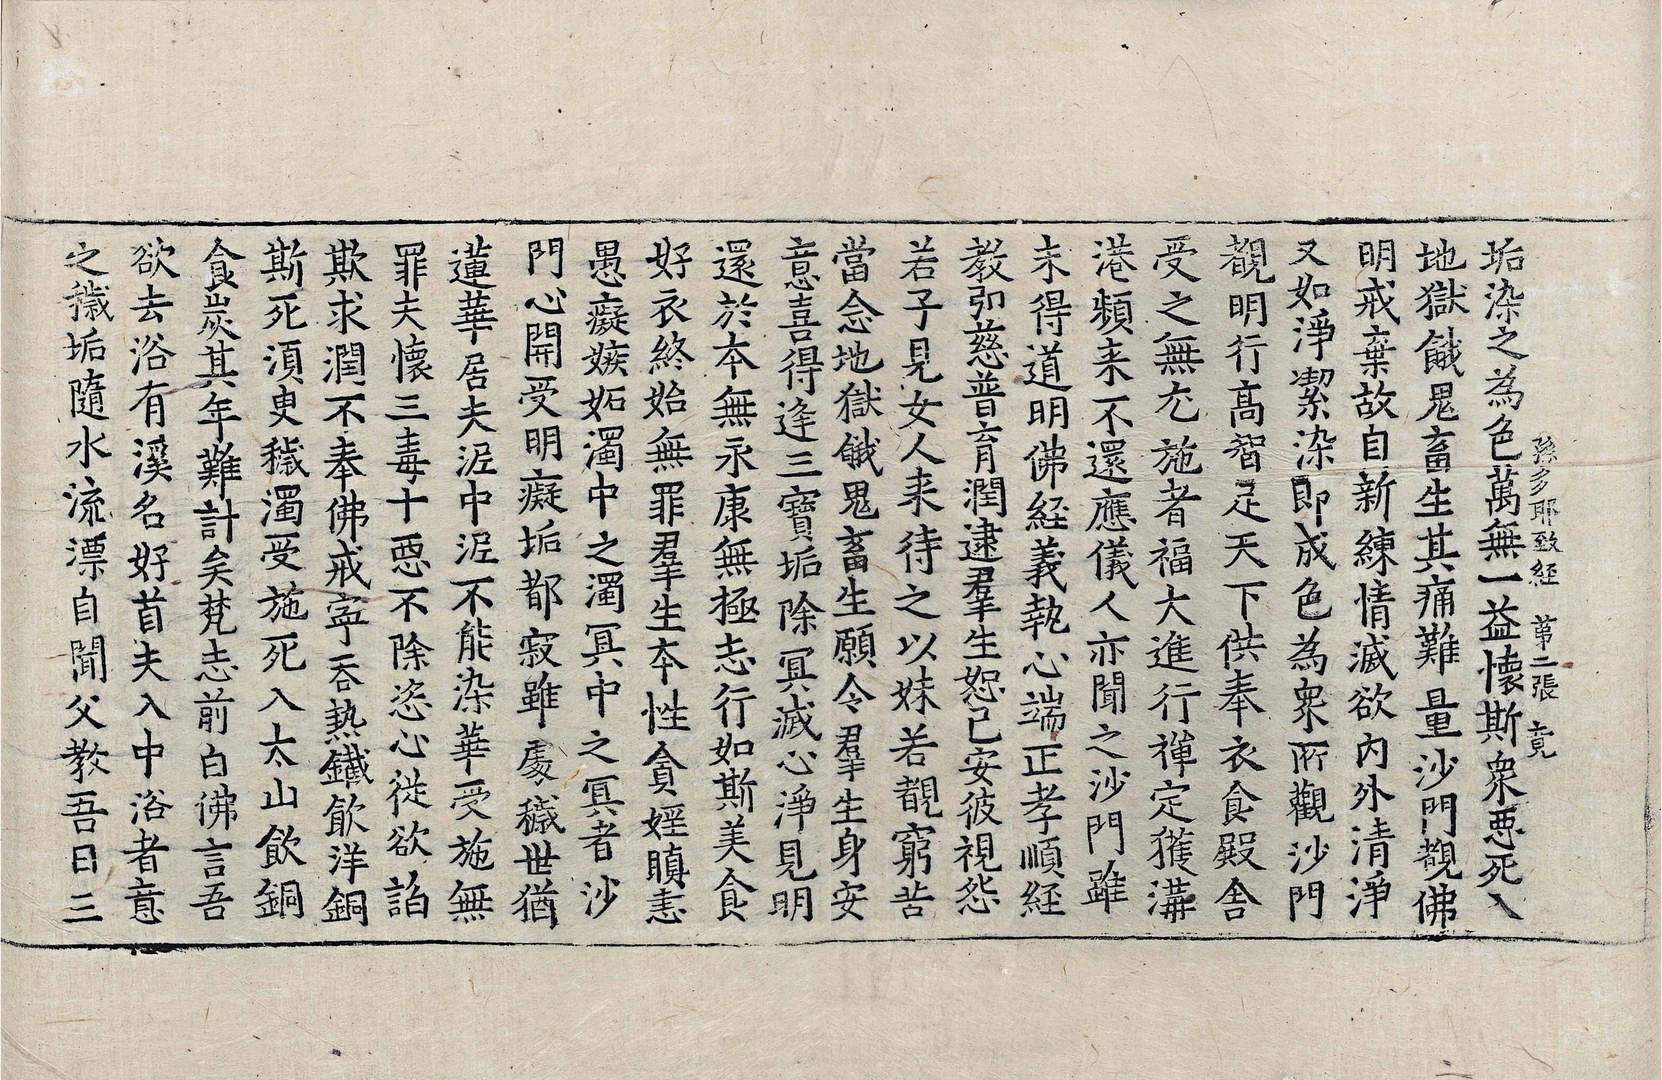 孫多耶致経 第二張 竟
垢染之為色萬無一益懷斯衆悪死入
地獄餓鬼畜生其痛難量沙門覩佛
明戒棄故自新練情滅欲内外清淨
又如淨潔染即成色為衆所觀沙門
覩明行高智足天下供奉衣食殿舎
受之無尤施者福大進行禅定獲溝
港頻来不還應儀人亦聞之沙門雖
未得道明佛経義執心端正孝順経
教弘慈普育潤逮羣生恕已安彼視怨
若子見女人来待之以妹若覩窮苦
當念地獄餓鬼畜生願令羣生身安
意喜得逢三寶垢除冥滅心淨見明
還於本無永康無極志行如斯美食
好衣終始無罪羣生本性貪婬瞋恚
愚癡嫉妬濁中之濁冥中之冥者沙
門心開受明癡垢都寂雖處穢世猶
蓮華居夫泥中泥不能染華受施無
罪夫懷三毒十悪不除恣心從欲諂
欺求潤不奉佛戒寧吞熱鐵飲洋銅
斯死湏臾穢濁受施死入太山飲銅
食炭其年難計矣梵志前白佛言吾
欲去浴有溪名好首夫入中浴者意
之穢垢隨水流漂自聞父教吾曰三